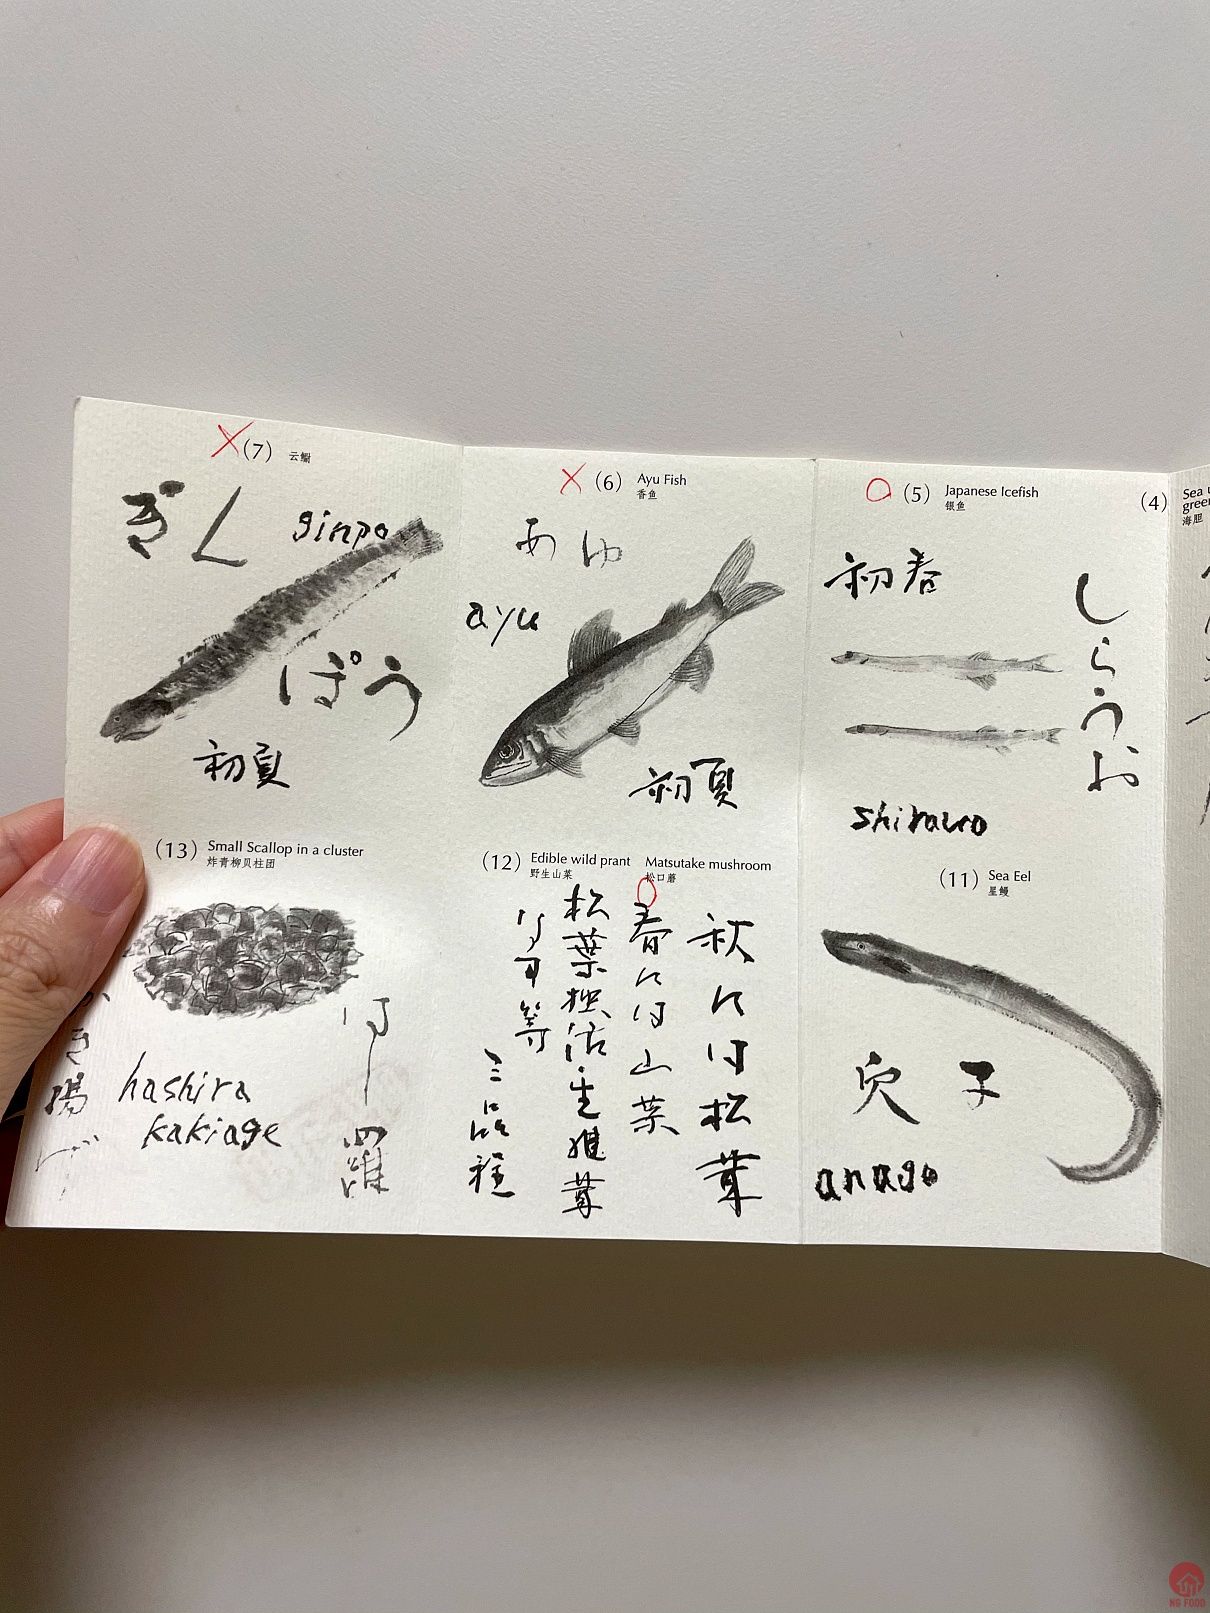 X (7) 云鳚
ぎん ginpo
ぽう
初夏
X (6) Ayu Fish
香鱼
あゆ
ayu
初夏
O (5) Japanese Icefish
银鱼
初春
しらうお
shirauo
(4) Sea u
green
海胆
(13) Small Scallop in a cluster
炸青柳贝柱团
はしら
かき揚げ
hashira
kakiage
(12) Edible wild prant Matsutake mushroom
野生山菜 松口蘑
秋には松茸
春には山菜
三品程
(11) Sea Eel
星鳗
穴子
anago
NG FOOD